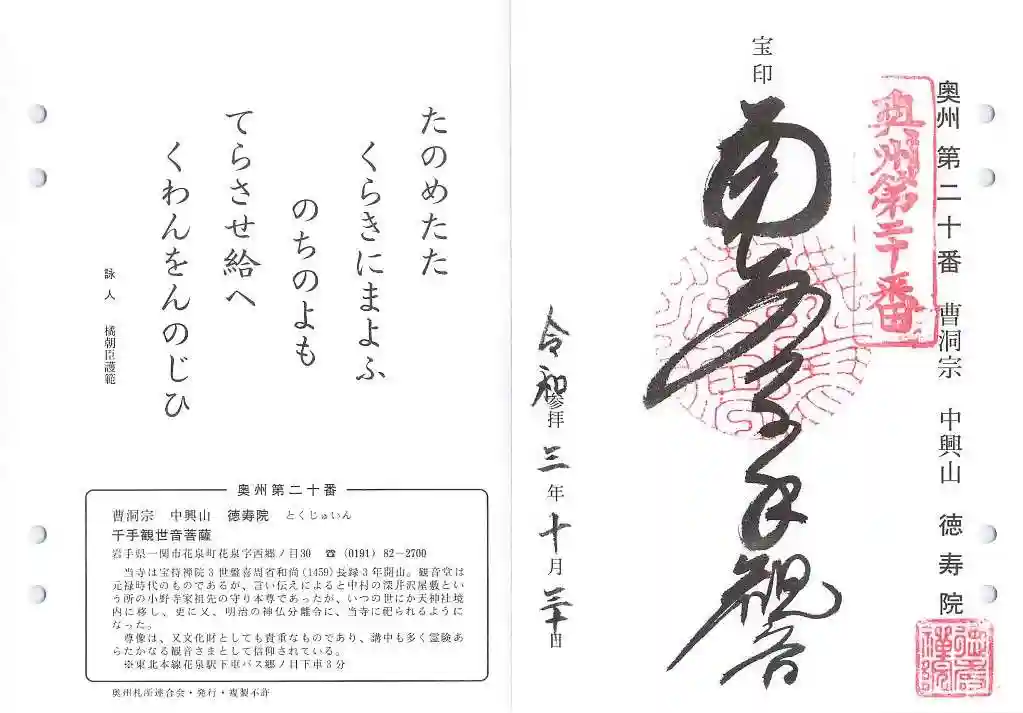 奥州 第二十番 曹洞宗 中興山 徳寿院
奥州第二十番
宝印
南無千手観音
令和
参拝 三年十月三十日
徳寿禅院
たのめたた
くらきにまよふ
のちのよも
てらさせ給へ
くわんをんのじひ
詠人 橘朝臣護範
奥州第二十番
曹洞宗 中興山 徳寿院 とくじゅいん
千手観世音菩薩
岩手県一関市花泉町花泉字西郷ノ目30 ☎ (0191) 82-2700
当寺は宝持禅院3世盤喜周省和尚(1459)長録3年開山。観音堂は
元禄時代のものであるが、言い伝えによると中村の深井沢屋敷とい
う所の小野寺家祖先の守り本尊であったが、いつの世にか天神社境
内に移し、更に又、明治の神仏分離令に、当寺に祀られるように
なった。
尊像は、又文化財としても貴重なものであり、講中も多く霊険あ
らたかなる観音さまとして信仰されている。
※東北本線花泉駅下車バス郷ノ目下車3分
奥州札所連合会・発行・複製不許